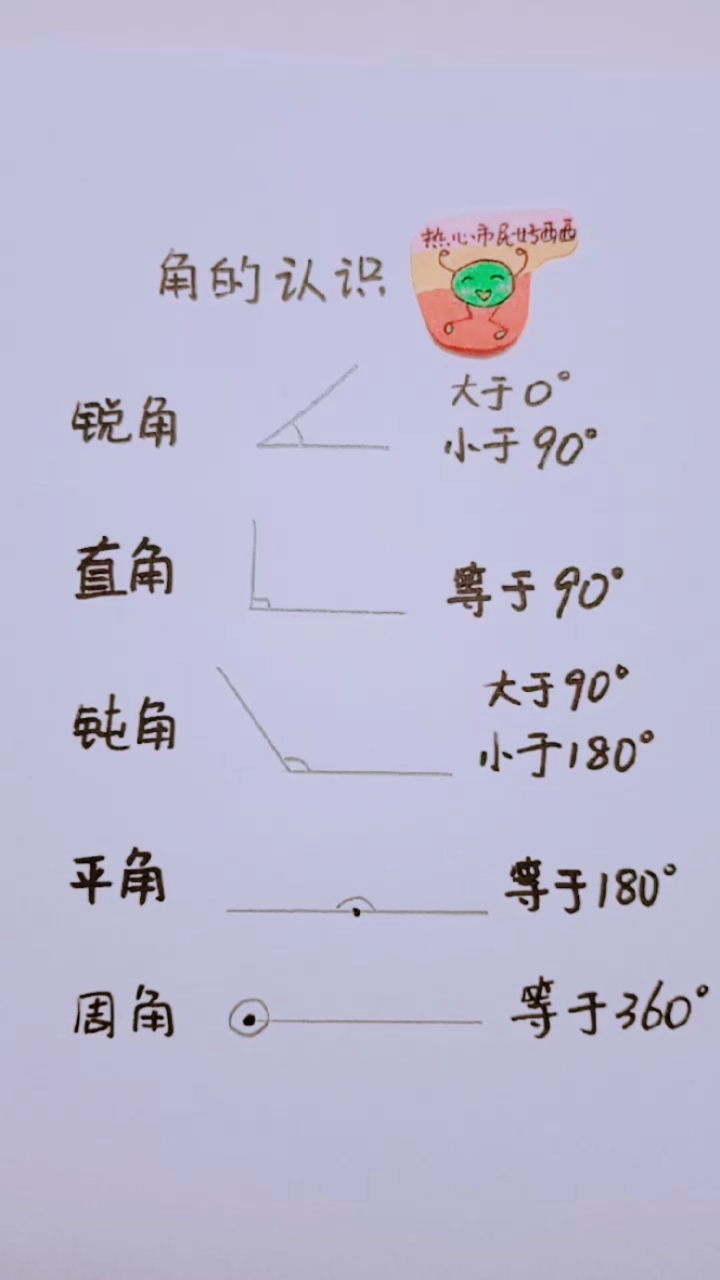 热心市民好西西
角的认识
锐角
大于0°
小于90°
直角
等于90°
钝角
大于90°
小于180°
平角
等于180°
周角
等于360°